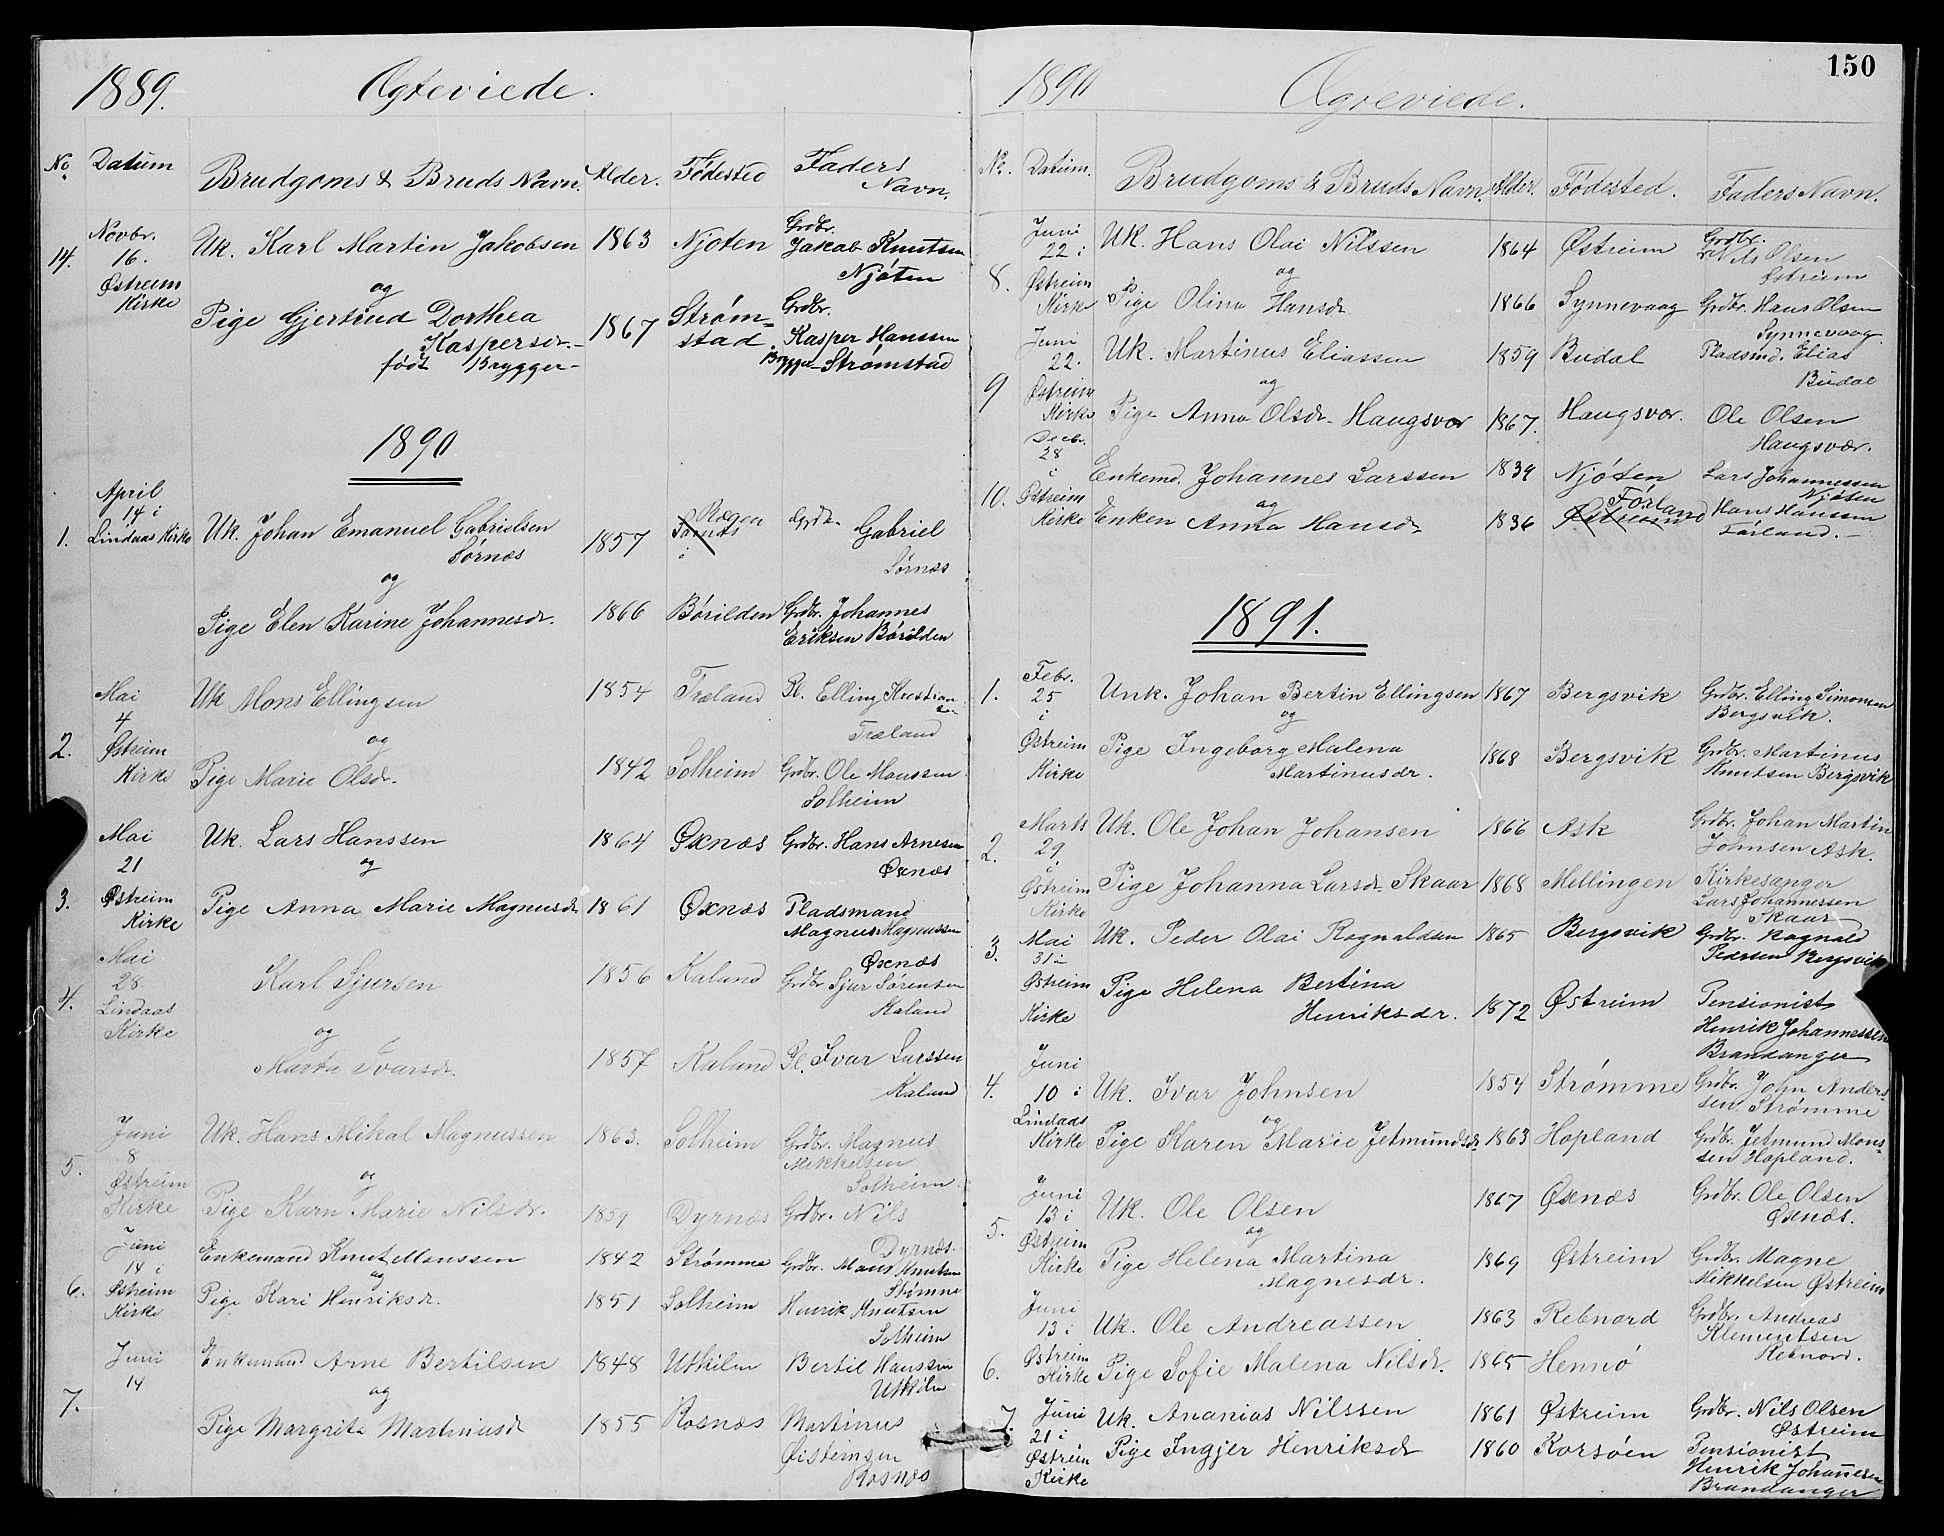 1889. Ægteviede.
No. Datum Brudgoms & Bruds Navn. Alder. Fødested Faders Navn.
14. Novbr. 16. Østreim Kirke
Uk. Karl Martin Jakobsen 1863 Njøten Grdbr. Jakob Knutsen Njøten
og
Pige Gjertrud Dorthea Kaspersdr. født Brygger 1867 Strømstad Grdbr. Kasper Hanssen Brygger Strømstad
1890.
1. April 14 i Lindaas Kirke
Uk. Johan Emanuel Gabrielsen Sørnæs 1857 Gabriel Sørnæs
og
Pige Elen Karine Johannesdr. 1866 Børilden Grdbr. Johannes Eriksen Børilden
2. Mai 4 Østreim Kirke
Uk Mons Ellingsen 1854 Træland Pl. Elling Træland
og
Pige Marie Olsdr. 1842 Solheim Grdbr. Ole Monssen Solheim
3. Mai 21 Østreim Kirke
Uk. Lars Hanssen 1864 Øxnæs Grdbr. Hans Arnesen Øxnæs
og
Pige Anna Marie Magnusdr 1861 Øxnæs Pladsmand Magnus Magnussen Øxnæs
4. Mai 28 Lindaas Kirke
Karl Sjursen 1856 Kaland Grdbr Sjur Sørensen Kaland
og
Marta Ivarsdr. 1857 Kaland Pl. Ivar Larssen Kaland
5. Juni 8 Østreim Kirke
Uk. Hans Mikal Magnussen 1863. Solheim Grdbr. Magnus Mikkelsen Solheim.
og
Pige Karn Marie Nilsdr. 1859 Dyrnæs Grdbr. Nils Dyrnæs.
6. Juni 14 i Østreim Kirke
Enkemand Knut Monssen 1842 Strømme Grdbr. Mons Knutsen Strømme
og
Pige Kari Henriksdr. 1851 Solheim Henrik Knutsen Solheim
7. Juni 14
Enkemand Arne Bertilsen 1848 Utkilen Bertil Hanssen Utkilen
og
Pige Margrita Martinusdr 1855 Rosnæs Martinus Øistensen Rosnæs
150
1890 Ægteviede.
No. Datum. Brudgoms & Bruds Navn. Alder. Fødested. Faders Navn.
8. Juni 22 i Østreim Kirke
Uk. Hans Olai Nilssen 1864 Østreim Grdbr. Nils Olsen Østreim
og
Pige Olina Hansdr 1866 Synnevaag Grdbr. Hans Olsen Synnevaag.
9 Juni 22. Østreim Kirke
Uk. Martinus Eliassen 1859 Budal Pladsmd. Elias Budal
og
Pige Anna Olsdr. Haugsvær 1867. Haugsvær. Ole Olsen Haugsvær.
10. Decbr. 28 i Østreim Kirke
Enkemd. Johannes Larssen 1839 Njøten Lars Johannessen Njøten
og
Enken Anna Hansdr 1836 Østreim Førland Hans Hanssen Førland.
1891.
1. Febr. 25 i Østreim Kirke
Unk. Johan Bertin Ellingsen 1867 Bergsvik Grdbr. Elling Simonsen Bergsvik.
og
Pige Ingeborg Malena Martinusdr. 1868 Bergsvik Grdbr. Martinus Knutsen Bergsvik
2. Marts 29 i Østreim Kirke
Uk. Ole Johan Johansen 1866 Ask Grdbr. Johan Martin Johnsen Ask.
Pige Johanna Larsdr Skaar 1868 Mellingen Kirkesanger Lars Johannessen Skaar
3. Mai 31 i Østreim Kirke
Uk. Peder Olai Rognaldsen 1865 Bergsvik Grdbr. Rognald Pedersen Bergsvik
Pige Helena Bertina Henriksdr. 1872 Østreim Pensionist Henrik Johannessen Brandanger
4. Juni 10 i Lindaas Kirke
Uk. Ivar Johnsen 1854 Strømme Grdbr. John Anderssen Strømme
og
Pige Karen Marie Jetmundsdr. 1863 Hopland Grdbr. Jetmund Monssen Hopland.
5. Juni 13 i Østreim Kirke
Uk. Ole Olsen 1867 Øxnæs Grdbr. Ole Olsen Øxnæs.
og
Pige Helena Martina Magnesdr. 1869 Østreim Grdbr. Magne Mikkelsen Østreim
6. Juni 13 i Østreim Kirke
Uk. Ole Andreassen 1863 Rebnord Grdbr. Andreas Klementsen Rebnord.
Pige Sofie Malena Nilsdr. 1865 Hennø
7. Juni 21 i Østreim Kirke
Uk. Ananias Nilssen 1861 Østreim Grdbr. Nils Olsen Østreim
Pige Ingjer Henriksdr 1860 Korsøen Pensionist Henrik Johannesen Brandanger